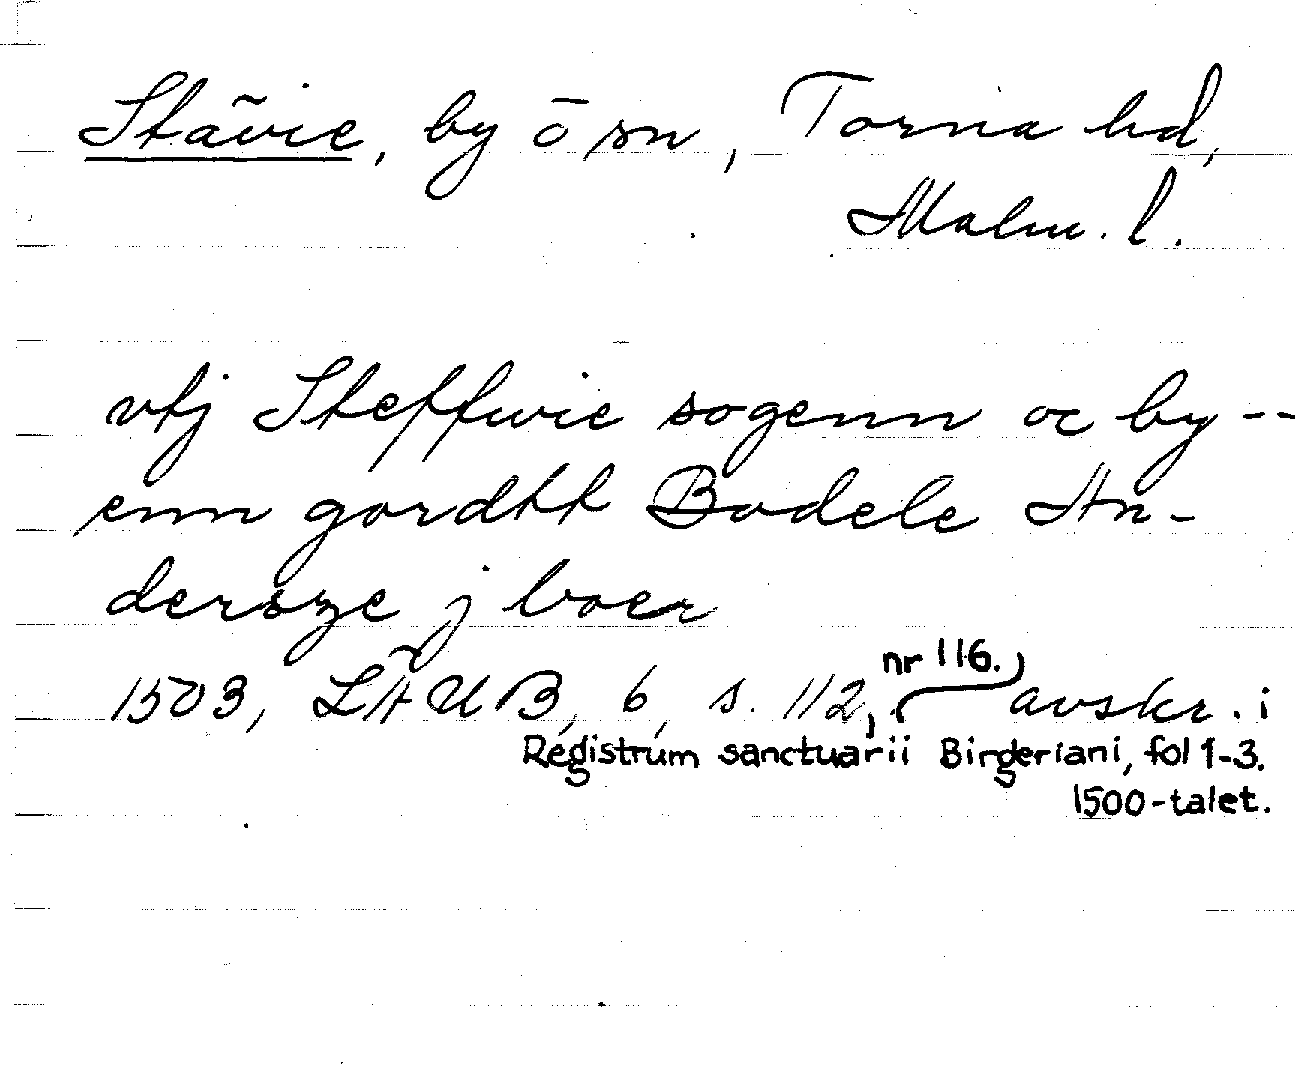 Stävie, by o sn, Torna hd,
Malm. l.
vtj Steffwie sogenn oc by --
enn gardtt Bodele An-
dersze j boer
1503, LÄUB, 6, s. 112, nr 116. avskr. i
Registrum sanctuarii Birgeriani, fol 1-3.
1500-talet.